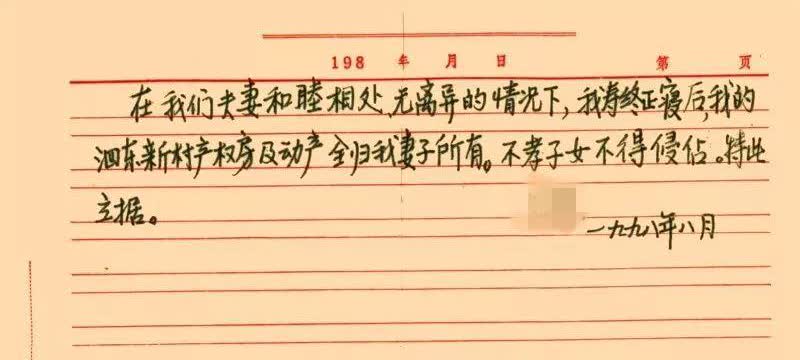 198 年 月 日 第 页
在我们夫妻和睦相处、无离异的情况下，我寿终正寝后，我的
泗东新村产权房及动产全归我妻子所有。不孝子女不得侵佔。特此
立据。
一九九八年八月